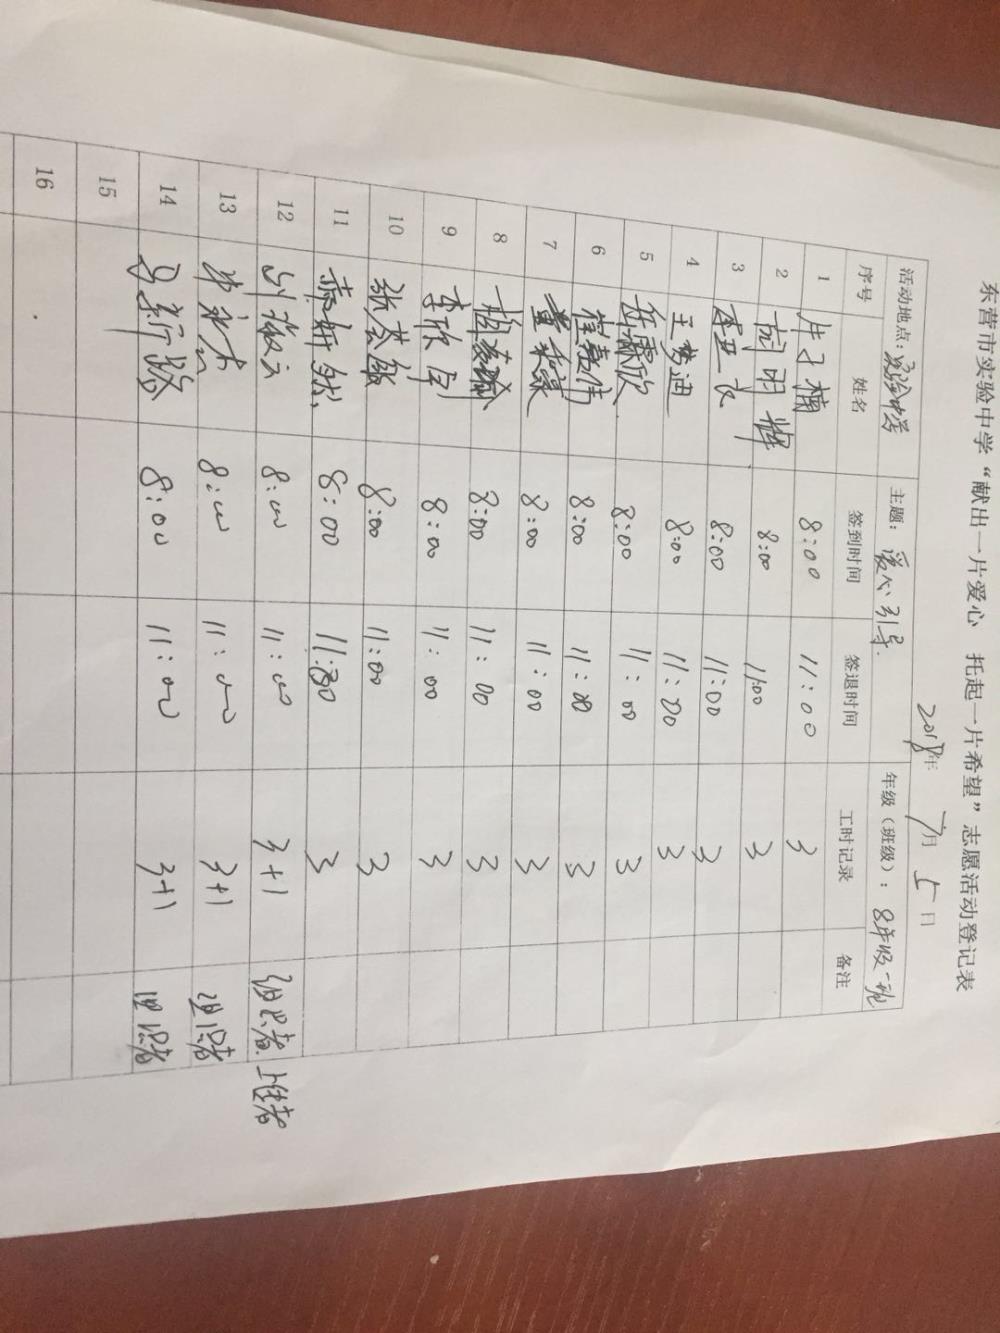 东营市实验中学“献出一片爱心 托起一片希望”志愿活动登记表
2018年 7月 5日
活动地点：实验中学 主题：爱心引导 年级（班级）：8年级一班
序号 姓名 签到时间 签退时间 工时记录 备注
1 牛子楠 8:00 11:00 3
2 胡明辉 8:00 11:00 3
3 8:00 11:00 3
4 王梦迪 8:00 11:00 3
5 任霖欣 8:00 11:00 3
6 崔嘉伟 8:00 11:00 3
7 8:00 11:00 3
8 8:00 11:00 3
9 李欣 8:00 11:00 3
10 张芸 8:00 11:00 3
11 妍然 8:00 11:00 3
12 8:00 11:00 3+1 组织者
13 8:00 11:00 3+1 组织者
14 马新 8:00 11:00 3+1 组织者
15
16